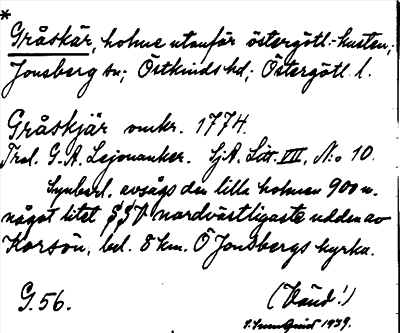 *
Gråskär, holme utanför östergötl.-kusten;
Jonsberg sn; Östkinds hd; Östergötl. l.
Gråskjär omkr. 1774.
G. A. Lejonanker. SjA. Litt. VIII, N:o 10.
Synberl. avsågs den lilla holmen 900 m.
något litet SSV nordvästligaste udden av
Korsön, bel. 8 km. Ö Jonsbergs kyrka.
G. 56.
(Vänd!)
1939.